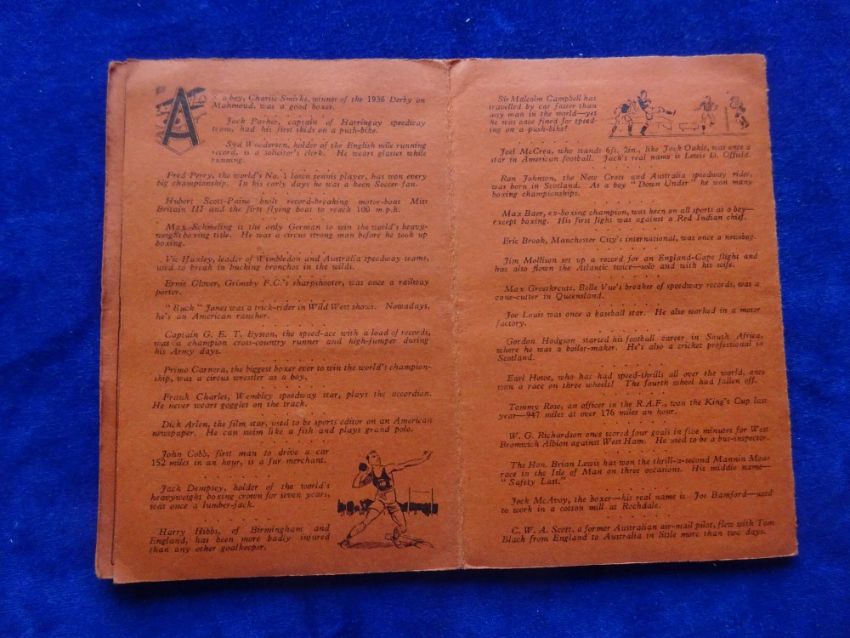 As a boy, Charlie Smirke, winner of the 1936 Derby on
Mahmoud, was a good boxer.
Jack Parker, captain of Harringay speedway
team, had his first skids on a push-bike.
Syd Wooderson, holder of the English mile running
record, is a solicitor's clerk. He wears glasses while
running.
Fred Perry, the world's No. 1 lawn tennis player, has won every
big championship. In his early days he was a keen Soccer fan.
Hubert Scott-Paine built record-breaking motor-boat Miss
Britain III and the first flying boat to reach 100 m.p.h.
Max Schmeling is the only German to win the world's heavy-
weight boxing title. He was a circus strong man before he took up
boxing.
Vic Huxley, leader of Wimbledon and Australia speedway teams,
used to break in bucking bronchos in the wilds.
Ernie Glover, Grimsby F.C.'s sharpshooter, was once a railway
porter.
"Buck" Jones was a trick-rider in Wild West shows. Nowadays,
he's an American rancher.
Captain G. E. T. Eyston, the speed-ace with a load of records,
was a champion cross-country runner and high-jumper during
his Army days.
Primo Carnera, the biggest boxer ever to win the world's champion-
ship, was a circus wrestler as a boy.
Frank Charles, Wembley speedway star, plays the accordion.
He never wears goggles on the track.
Dick Arlen, the film star, used to be sports editor on an American
newspaper. He can swim like a fish and plays grand polo.
John Cobb, first man to drive a car
152 miles in an hour, is a fur merchant.
Jack Dempsey, holder of the world's
heavyweight boxing crown for seven years,
was once a lumber-jack.
Harry Hibbs, of Birmingham and
England, has been more badly injured
than any other goalkeeper.
Sir Malcolm Campbell has
travelled by car faster than
any man in the world—yet
he was once fined for speed-
ing on a push-bike!
Joel McCrea, who stands 6ft. 2in., like Jack Oakie, was once a
star in American football. Jack's real name is Lewis D. Offield.
Ron Johnson, the New Cross and Australia speedway rider,
was born in Scotland. As a boy "Down Under" he won many
boxing championships.
Max Baer, ex-boxing champion, was keen on all sports as a boy—
except boxing. His first fight was against a Red Indian chief.
Eric Brook, Manchester City's international, was once a newsboy.
Jim Mollison set up a record for an England-Cape flight and
has also flown the Atlantic twice—solo and with his wife.
Max Grosskreutz, Belle Vue's breaker of speedway records, was a
cane-cutter in Queensland.
Joe Louis was once a baseball star. He also worked in a motor
factory.
Gordon Hodgson started his football career in South Africa,
where he was a boiler-maker. He's also a cricket professional in
Scotland.
Earl Howe, who has had speed-thrills all over the world, once
won a race on three wheels! The fourth wheel had fallen off.
Tommy Rose, an officer in the R.A.F., won the King's Cup last
year—947 miles at over 176 miles an hour.
W. G. Richardson once scored four goals in five minutes for West
Bromwich Albion against West Ham. He used to be a bus-inspector.
The Hon. Brian Lewis has won the thrill-a-second Mannin Moar
race in the Isle of Man on three occasions. His middle name—
"Safety Last."
Jock McAvoy, the boxer—his real name is Joe Bamford—used
to work in a cotton mill at Rochdale.
C. W. A. Scott, a former Australian air-mail pilot, flew with Tom
Black from England to Australia in little more than two days.